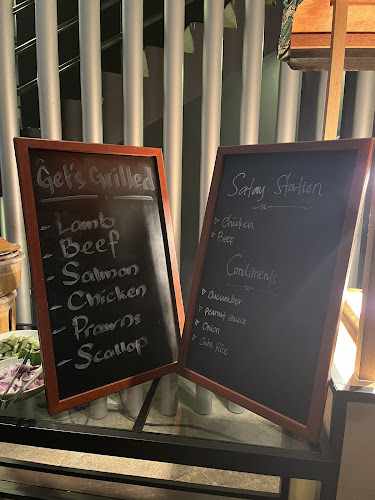 Get's Grilled
- Lamb
- Beef
- Salmon
- Chicken
- Prawns
- Scallop
Satay Station
Chicken
Beef
Condiments
Cucumber
Peanut sauce
Onion
Cube Rice